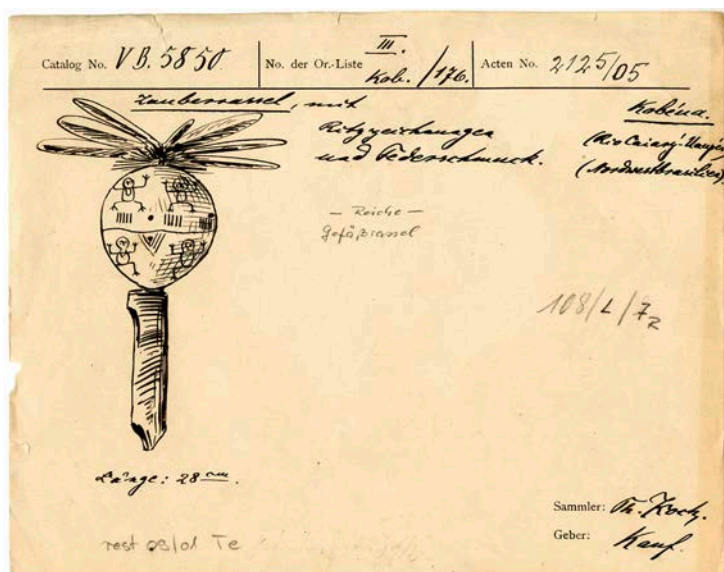 Catalog No. V B. 5850
No. der Or.-Liste III. Kob./176.
Acten No. 2125/05
Zauberrassel, mit
Ritzzeichnungen
und Federschmuck.
Kobéua.
(Rio Caiarý-Uaupés
(Nordwestbrasilien)
— Reiche —
Gefäßrassel
108/L/7
Länge: 28 cm.
Sammler: Th. Koch.
Geber: Kauf.
rest 03/01 Te